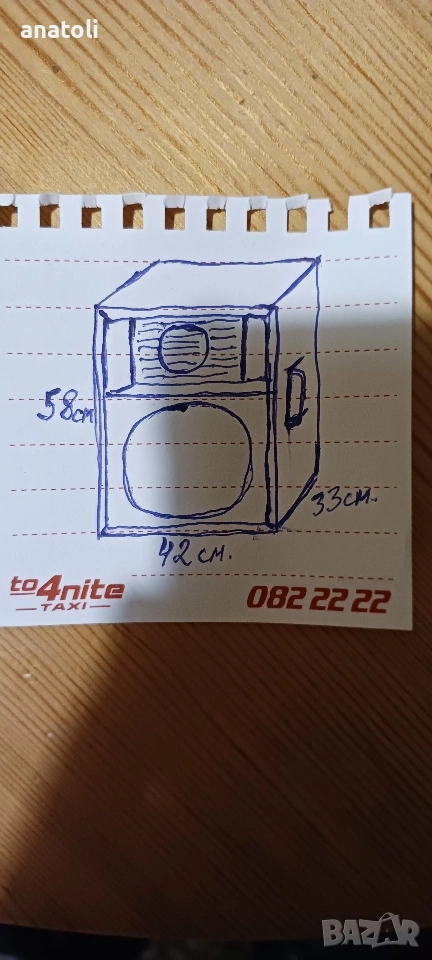 anatoli
58см
33см.
42см.
to4nite
TAXI
082 22 22
BAZAR